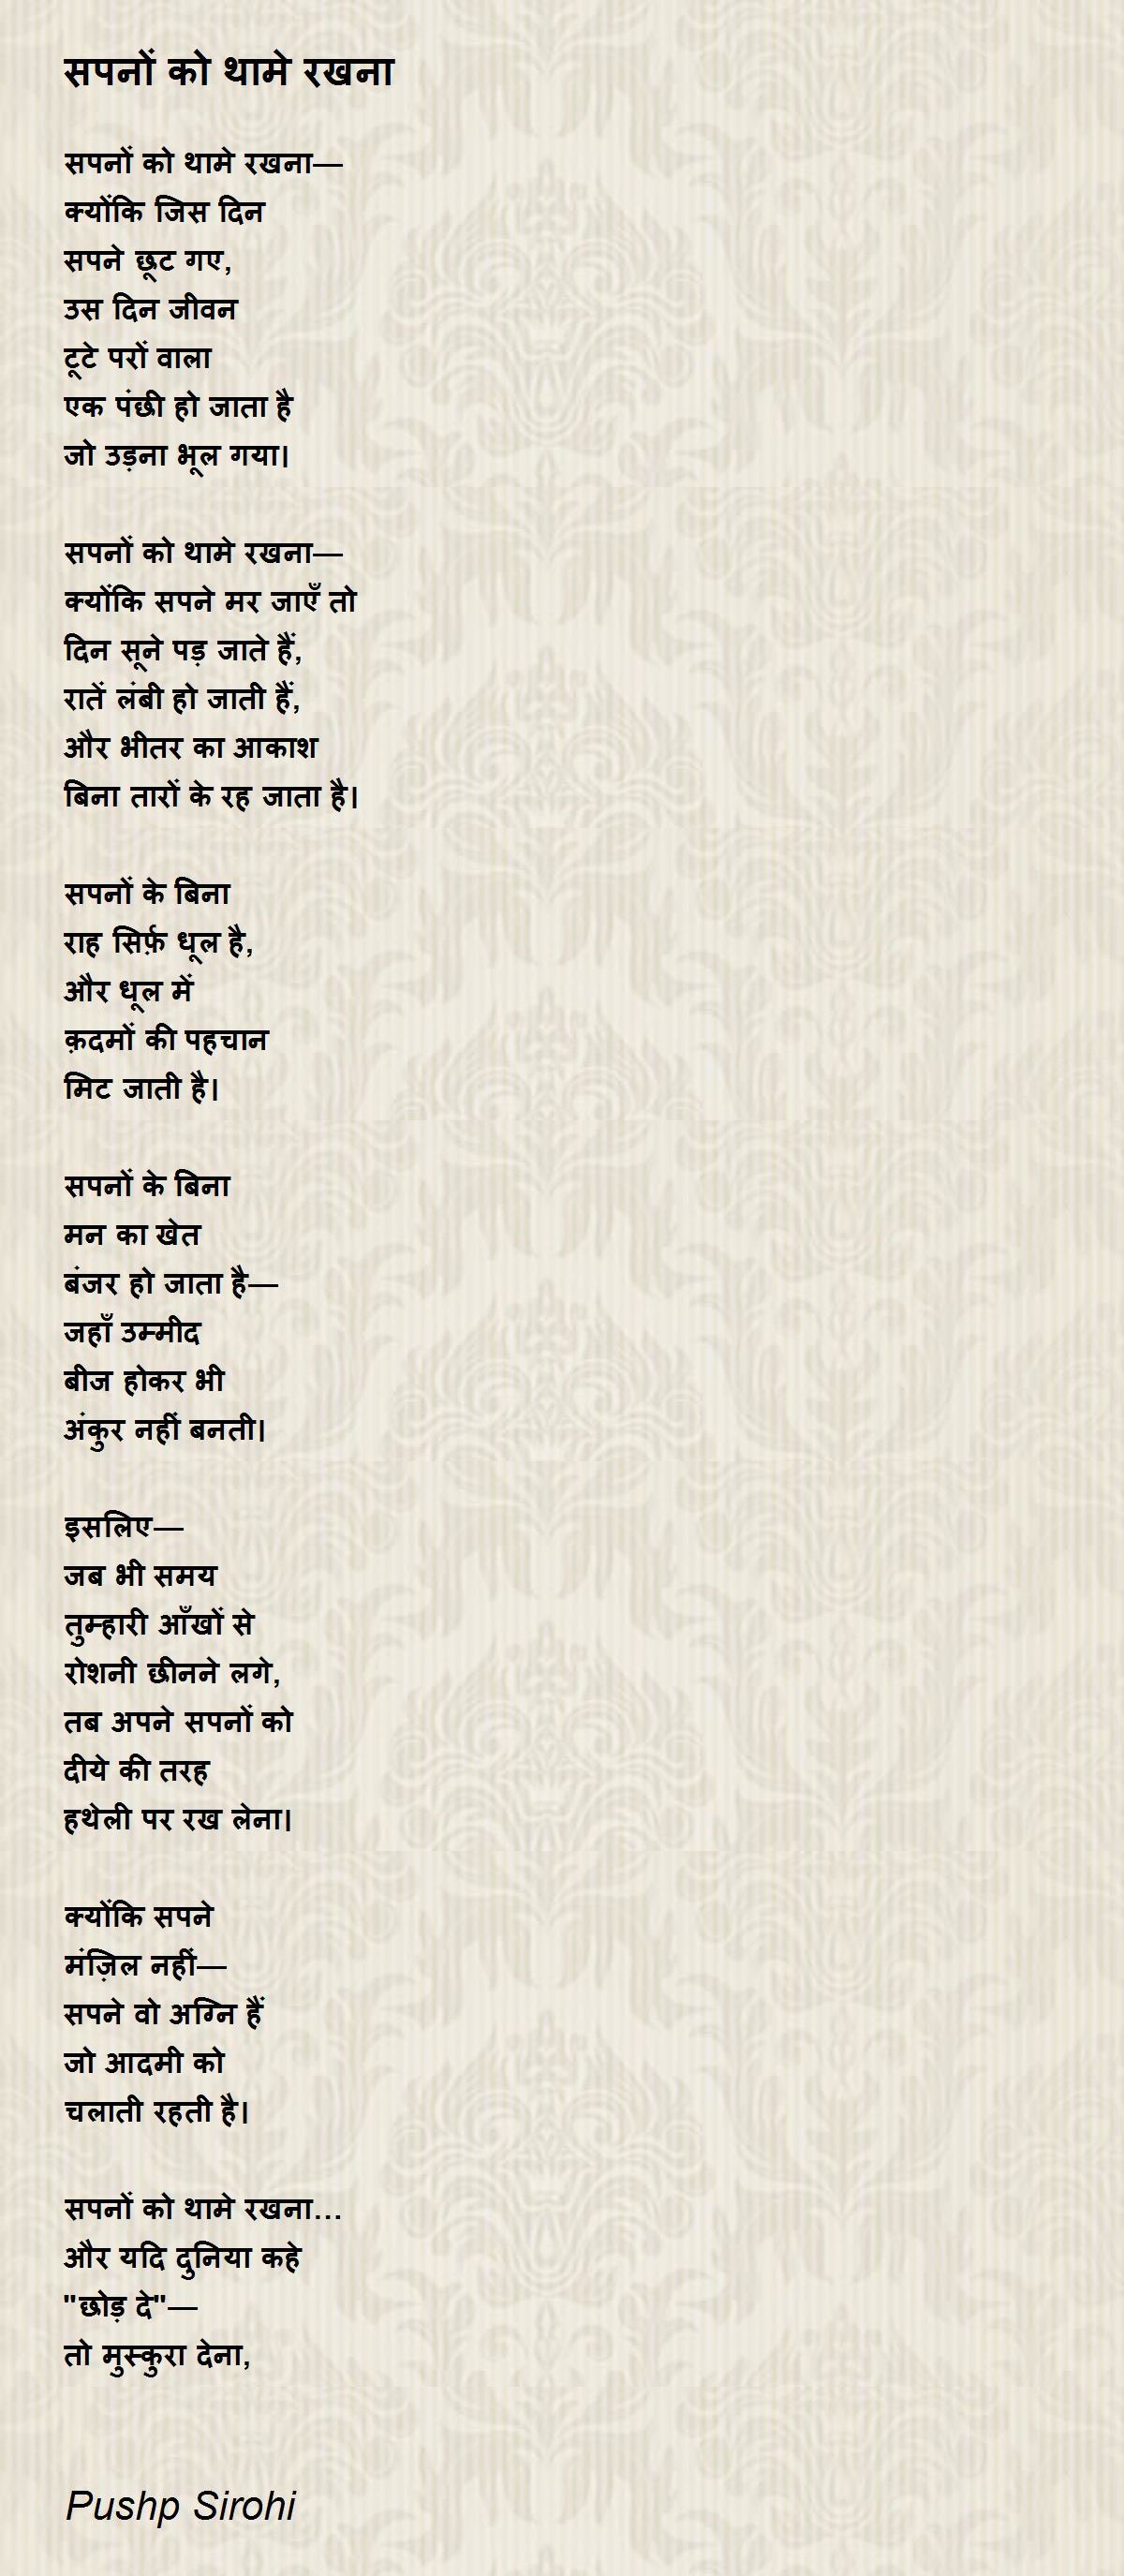 सपनों को थामे रखना
सपनों को थामे रखना—
क्योंकि जिस दिन
सपने छूट गए,
उस दिन जीवन
टूटे परों वाला
एक पंछी हो जाता है
जो उड़ना भूल गया।
सपनों को थामे रखना—
क्योंकि सपने मर जाएँ तो
दिन सूने पड़ जाते हैं,
रातें लंबी हो जाती हैं,
और भीतर का आकाश
बिना तारों के रह जाता है।
सपनों के बिना
राह सिर्फ़ धूल है,
और धूल में
क़दमों की पहचान
मिट जाती है।
सपनों के बिना
मन का खेत
बंजर हो जाता है—
जहाँ उम्मीद
बीज होकर भी
अंकुर नहीं बनती।
इसलिए—
जब भी समय
तुम्हारी आँखों से
रोशनी छीनने लगे,
तब अपने सपनों को
दीये की तरह
हथेली पर रख लेना।
क्योंकि सपने
मंज़िल नहीं—
सपने वो अग्नि हैं
जो आदमी को
चलाती रहती है।
सपनों को थामे रखना...
और यदि दुनिया कहे
"छोड़ दे"—
तो मुस्कुरा देना,
Pushp Sirohi